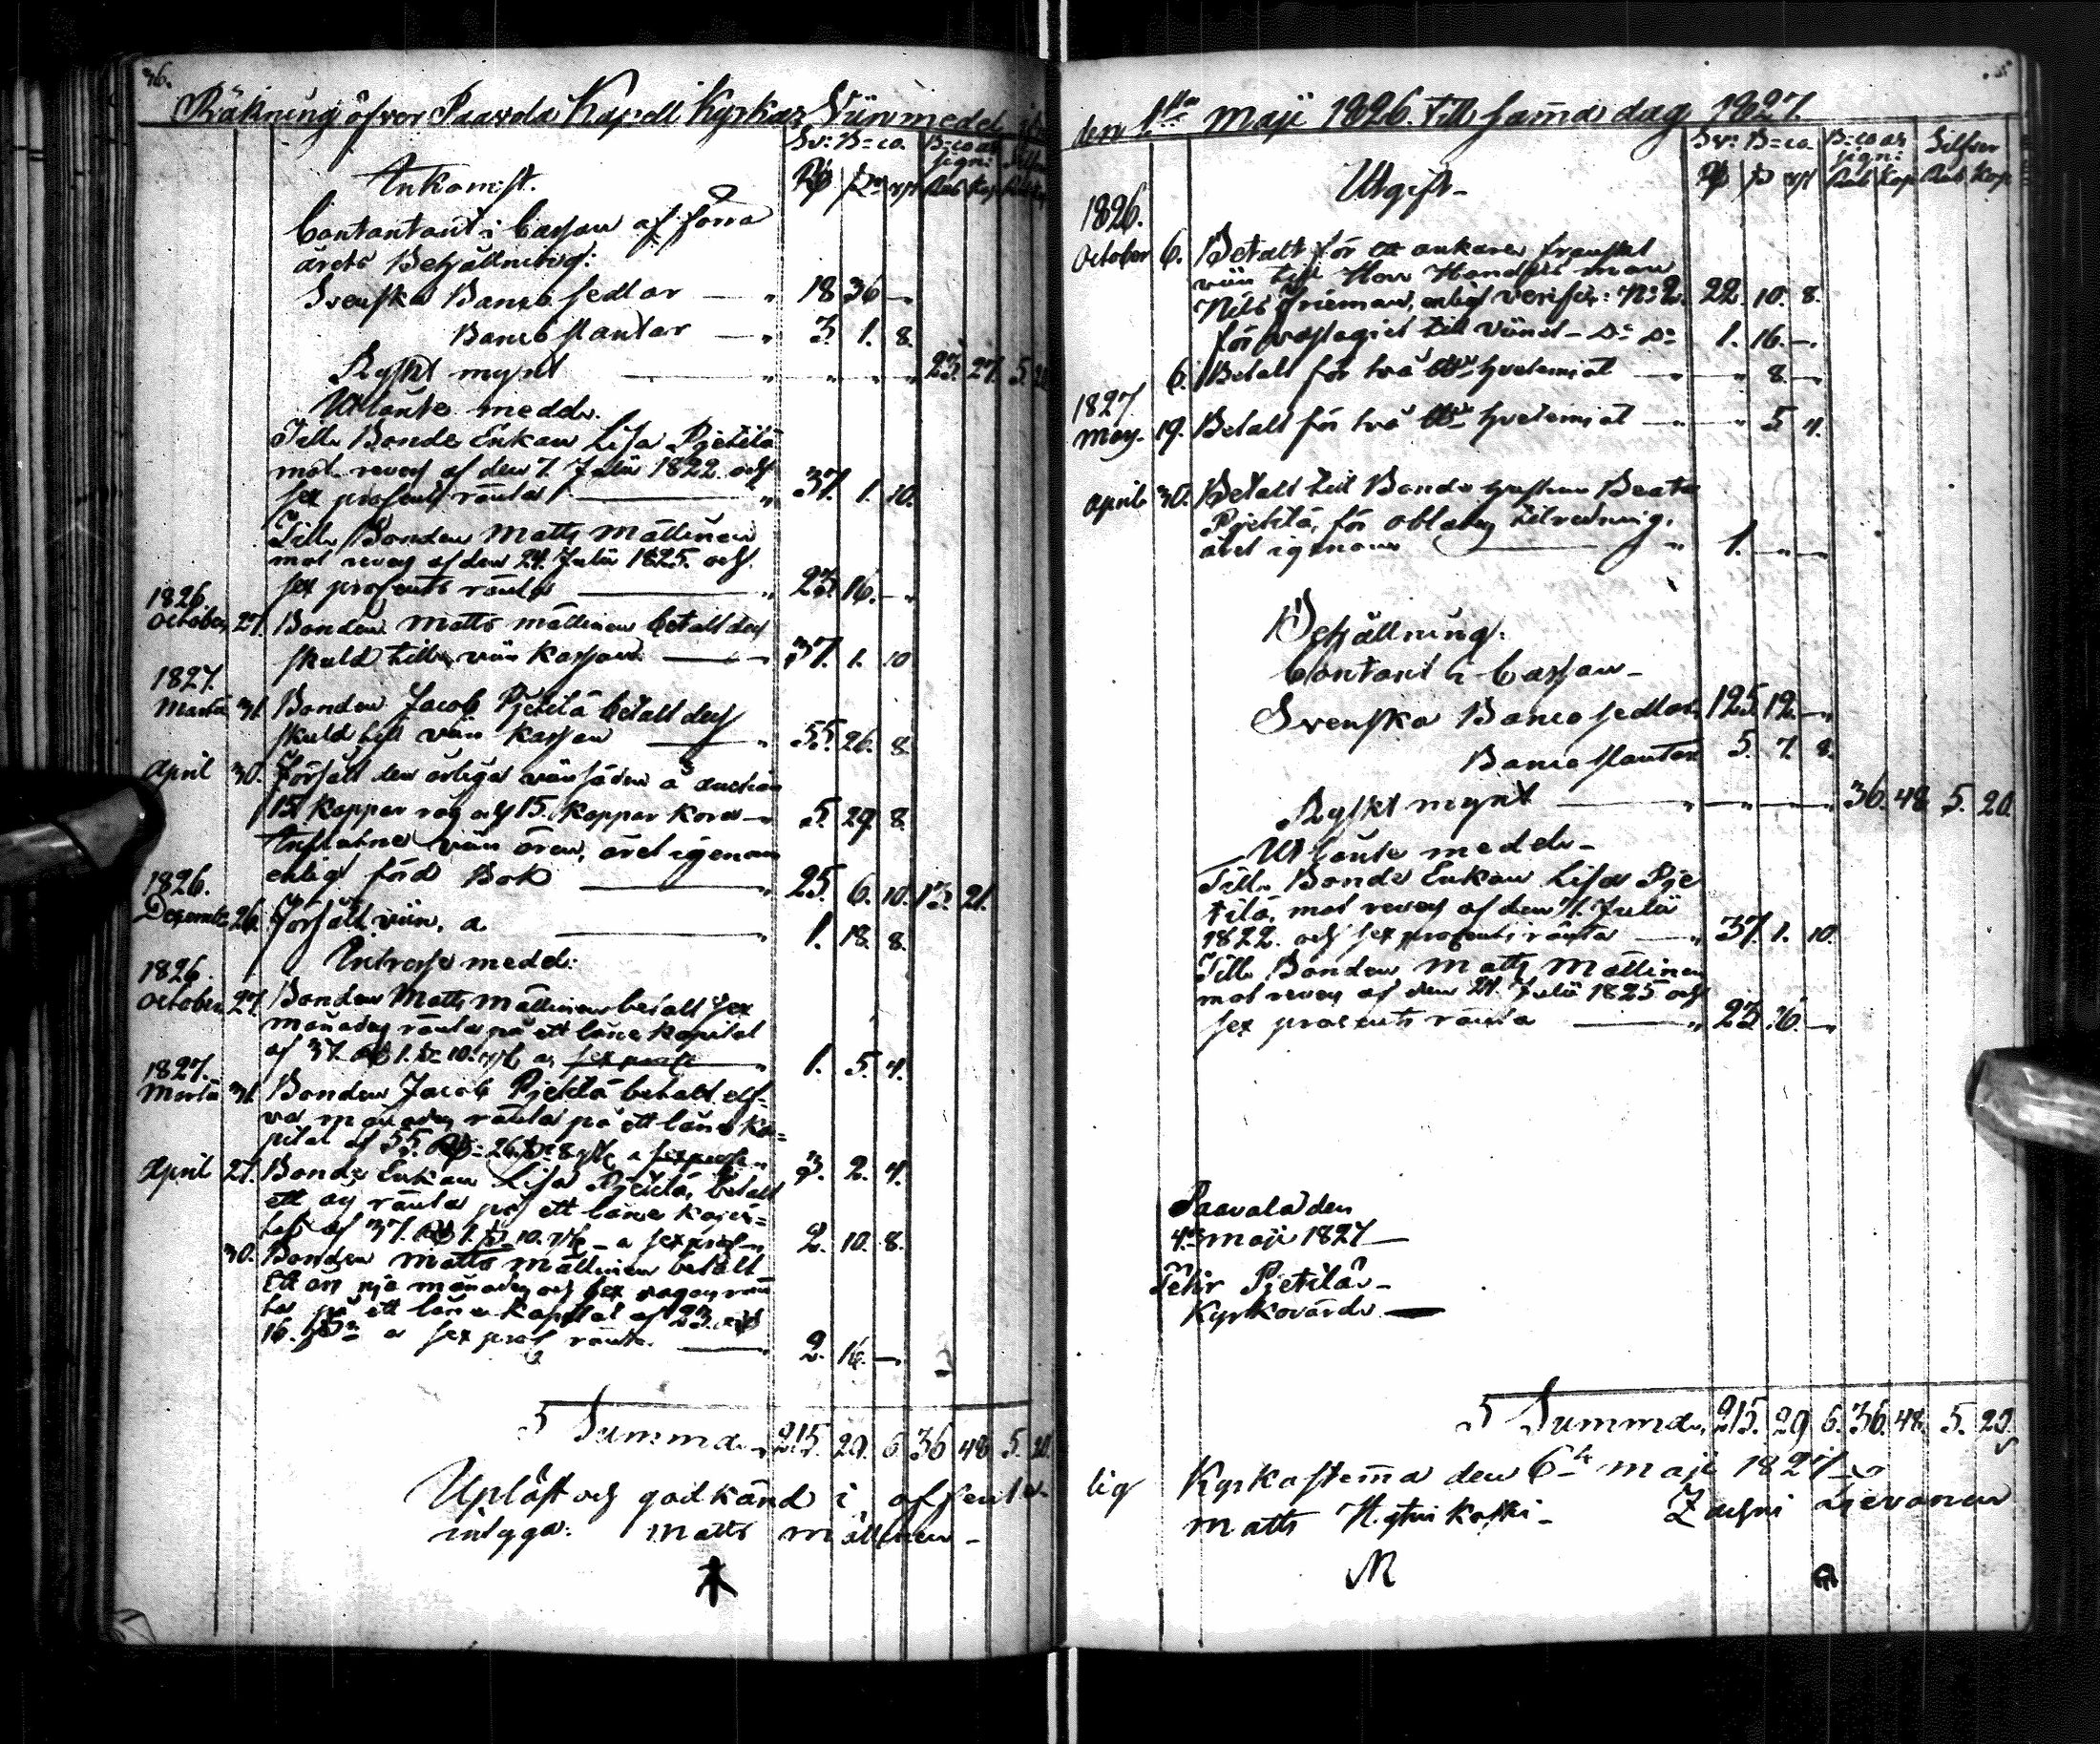 76.
Räkning öfver Paavola Kapell Kyrkas Viinmedel
Sv: B=co. B=co as sign:
Rd s rst Rub Kop
Inkomst.
Contantant i Cassan af förra
årets Behållning:
Svenska Banco sedlar — " 18 36 —
Banco slantar — " 3. 1. 8.
Ryskt mynt — " " " " 23. 27. 5 20
Utlånte medel.
Till Bonde Enkan Lisa Pjetilä
mot revers af den 7. Julii 1822 och
sex prosents ränta — " 37. 1. 10.
Till Bonden Matts Mällinen
mot revers af den 24. Julii 1825. och
sex prosents ränta — " 23 16. —
1826.
October 27. Bonden Matts Mällinen betalt des
skuld till viin Kassan — " 37. 1. 10
1827.
Martii 31. Bonden Jacob Pjetilä betalt des
skuld till viin Kassan — " 55. 26. 8.
April 30. Försålt den årliga viin säden å auction
15 Kappar råg och 15. Kappar Korn — 5. 29. 8.
Influtne viin ören, året igenom
enligt förd Bok — " 25. 6. 10. 13. 21.
1826.
Decembr 26. försålt viin, a — 1. 18. 8.
Intresse medel:
1826.
October 27. Bonden Matts Mällinen betalt sex
månaders ränta på ett låne kapital
af 37. Rd 1. s 10. rst a sex prosent — 1. 5. 4.
1827.
Martii 31. Bonden Jacob Pjetilä betalt elf=
va månaders ränta på ett låne ka=
pital af 55. Rd = 26. s 8 rst a sex pros — 3. 2. 4.
April 27. Bonde Enkan Lisa Pjetilä, betalt
ett års ränta på ett låne kapi=
tal af 37. Rd 1. s 10. rst — a sex pros — 2. 10. 8.
30. Bonden Matts Mällinen betalt
Ett år, nje månader och sex dagars rän
ta på ett låne Kapital af 23. Rd
16. s a sex pros ränta. — 2. 16. —
Summa 215. 29. 6 36 48 5. 20.
Upläst och godkänd i offente
intyga: Matts Mällinen —
den 1sta Maji 1826. till samma dag 1827.
Sv: B=co. B=co as sign: Silfver
Rd s rst Rub Kop Rub Kop
Utgift —
1826.
October 6. Betalt för ett ankare franskt
viin till Herr Handels man
Nils Frieman, enligt verific: No 2. 22. 10. 8.
för vastagiet till viinet — Do Do 1. 16. —
6. Betalt för två hvetemjöl — " 8. —
1827
May. 19. Betalt för två hvetemjöl — " 5 4.
April 30. Betalt till Bonde hustrun Beata
Pjetilä, för oblaters tilredning,
året igenom — " 1. — —
Behållning:
Contant i Cassan —
Svenska Banco sedlar, 125. 12. —
Banco slantar 5. 7. 8.
Ryskt mynt — " — " — 36. 48 5. 20
Utlånte medel —
Till Bonde Enkan Lisa Pje
tilä, mot revers af den 7. Julii
1822. och sex prosents ränta — " 37. 1. 10.
Till Bonden Matts Mällinen
mot revers af den 24. Julii 1825 och
sex prosents ränta — " 23 16. —
Paavola den
4de Maji 1827 —
Petir Pjetilä —
Kyrkovärd —
Summa, 215. 29 6. 36. 48. 5. 20.
lig Kyrkostemma den 6te Maji 1827
Matts — Zachri
M